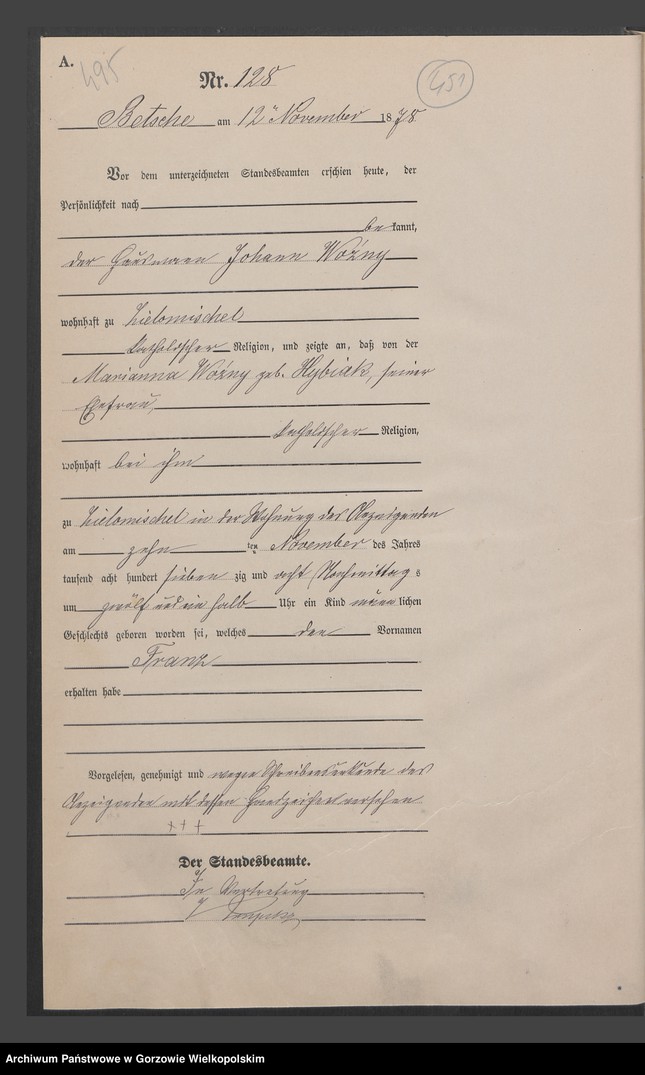 A.
495
Nr. 128
451
Betsche am 12ten November 1878
Vor dem unterzeichneten Standesbeamten erschien heute, der
Persönlichkeit nach
bekannt,
der Hausmann Johann Woźny
wohnhaft zu Zielomischel
katholischer Religion, und zeigte an, daß von der
Marianna Woźny geb. Hybiak, seiner
Ehefrau,
katholischer Religion,
wohnhaft bei ihm
zu Zielomischel in der Wohnung des Anzeigenden
am zehn ten November des Jahres
tausend acht hundert sieben zig und acht Nachmittags
um zwölf und ein halb Uhr ein Kind männlichen
Geschlechts geboren worden sei, welches den Vornamen
Franz
erhalten habe
Vorgelesen, genehmigt und wegen Schreibensunkunde des
Anzeigenden mit dessen Handzeichen versehen
+++
Der Standesbeamte.
In Vertretung
Archiwum Państwowe w Gorzowie Wielkopolskim